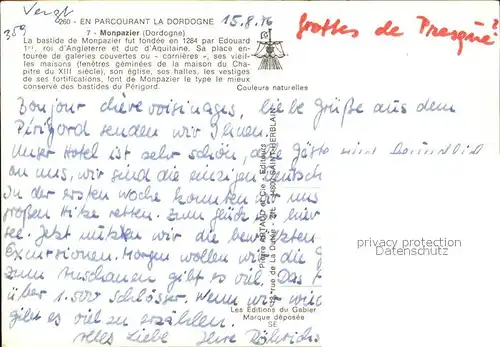 Vergt
359
260 - EN PARCOURANT LA DORDOGNE
15.8.76
Grottes de Presque
7 - Monpazier (Dordogne)
La bastide de Monpazier fut fondée en 1284 par Edouard
1er, roi d'Angleterre et duc d'Aquitaine. Sa place en-
tourée de galeries couvertes ou « cornières », ses vieil-
les maisons (fenêtres géminées de la maison du Cha-
pitre du XIII siècle), son église, ses halles, les vestiges
de ses fortifications, font de Monpazier le type le mieux
conservé des bastides du Périgord.
Couleurs naturelles
Bonjour chère voisinages, liebe Grüße aus dem
Périgord senden wir Ihnen.
Unser Hotel ist sehr schön, die Gäste sind
an uns, wir sind die einzigen
In der ersten Woche konnten wir uns
großen Hitze retten. Zum Glück hier
See. Jetzt nützen wir die
Exkursionen. Morgen wollen wir die
zum Anschauen gibt es viel. Das
über 1.500 Schlösser. Wenn wir
gibt es viel zu erzählen.
Alles Liebe Ihre
Pierre ARTAUD et Cie - Editeurs
rue de La Dutée - Z.I. - 44800 SAINT-HERBLAIN
Les Editions du Gabier
Marque déposée
SE
privacy protection
www.ansichtskarten-lexikon.de